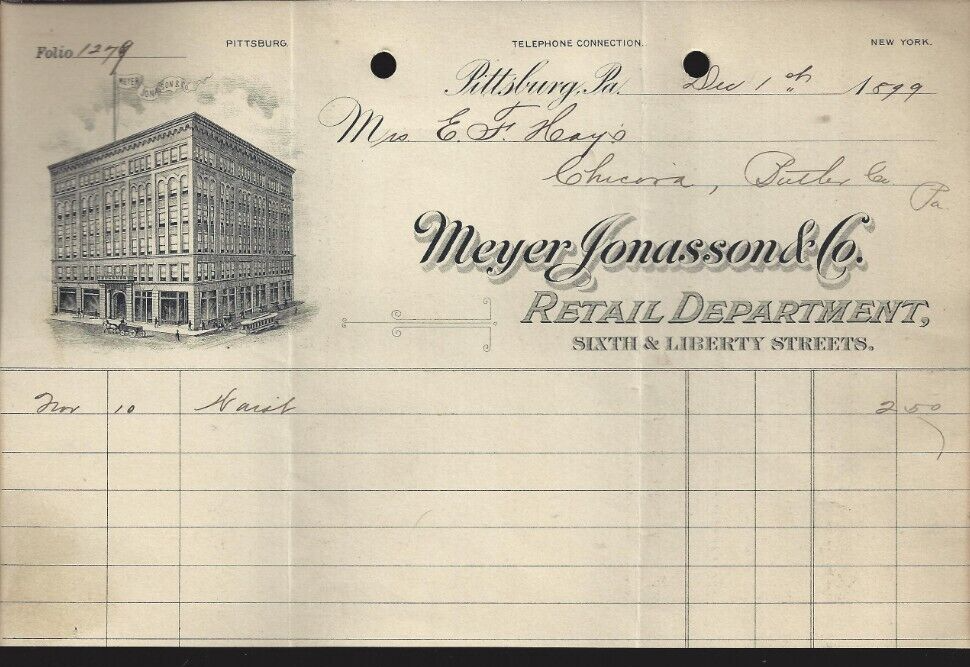 Folio 1279
PITTSBURG
TELEPHONE CONNECTION.
NEW YORK.
MEYER JONASSON & CO.
Pittsburg, Pa. Dec 1st 1899
Mrs. E. F. Hays
Chicora, Butler Co. Pa.
Meyer Jonasson & Co.
RETAIL DEPARTMENT,
SIXTH & LIBERTY STREETS.
Nov 10 Waist 2 50